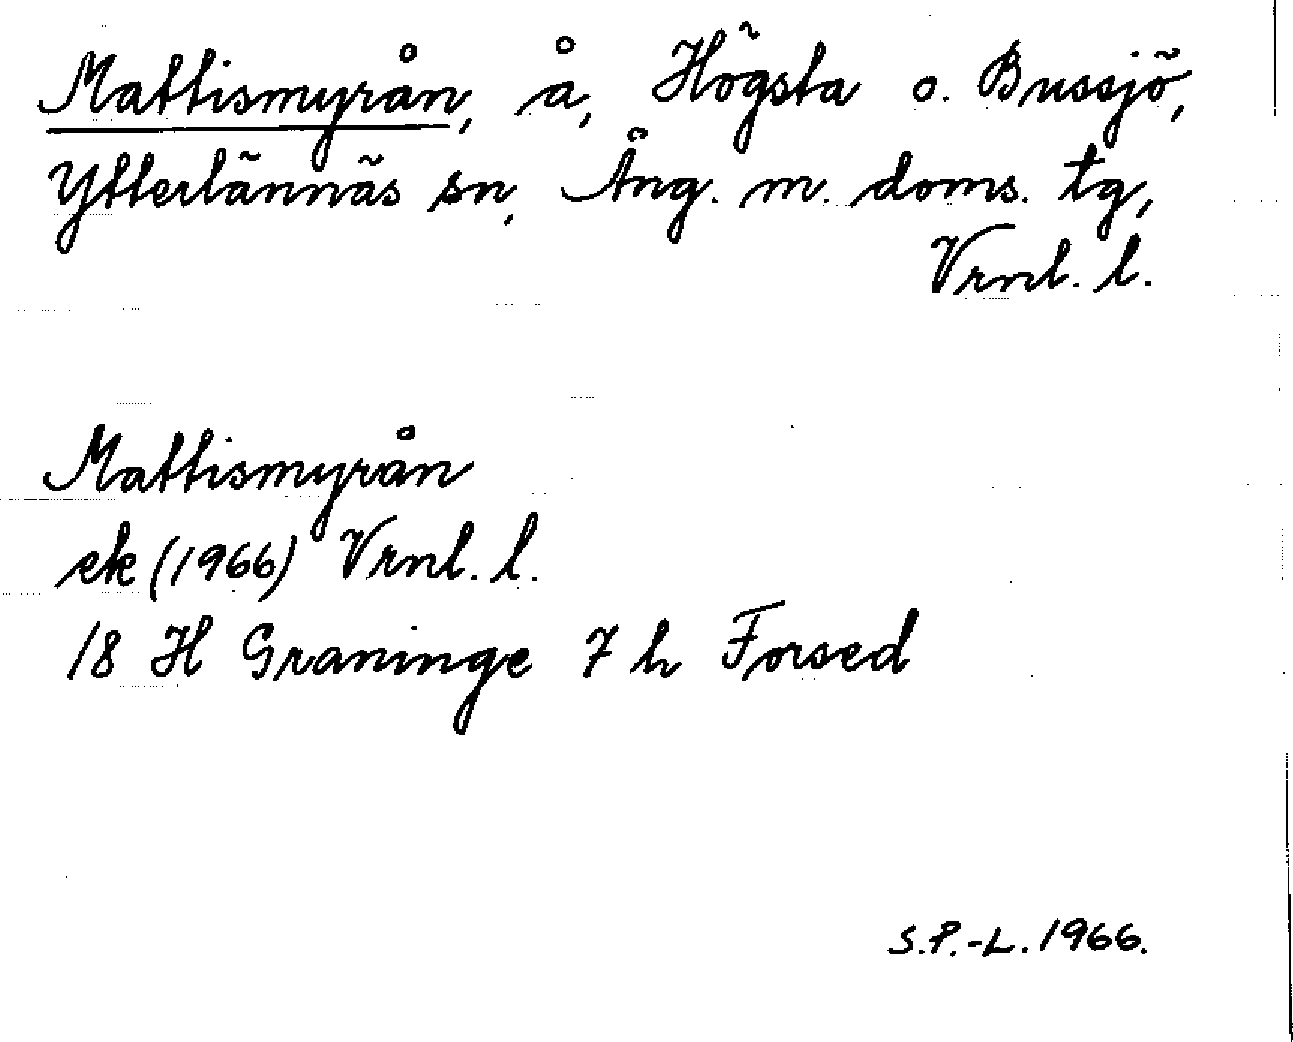 Mattismyrån, å, Högsta o. Bussjö,
Ytterlännäs sn, Ång. m. doms. tg,
Vrnl. l.
Mattismyrån
ek (1966) Vrnl. l.
18 H Graninge 7 h Forsed
S.P.-L. 1966.